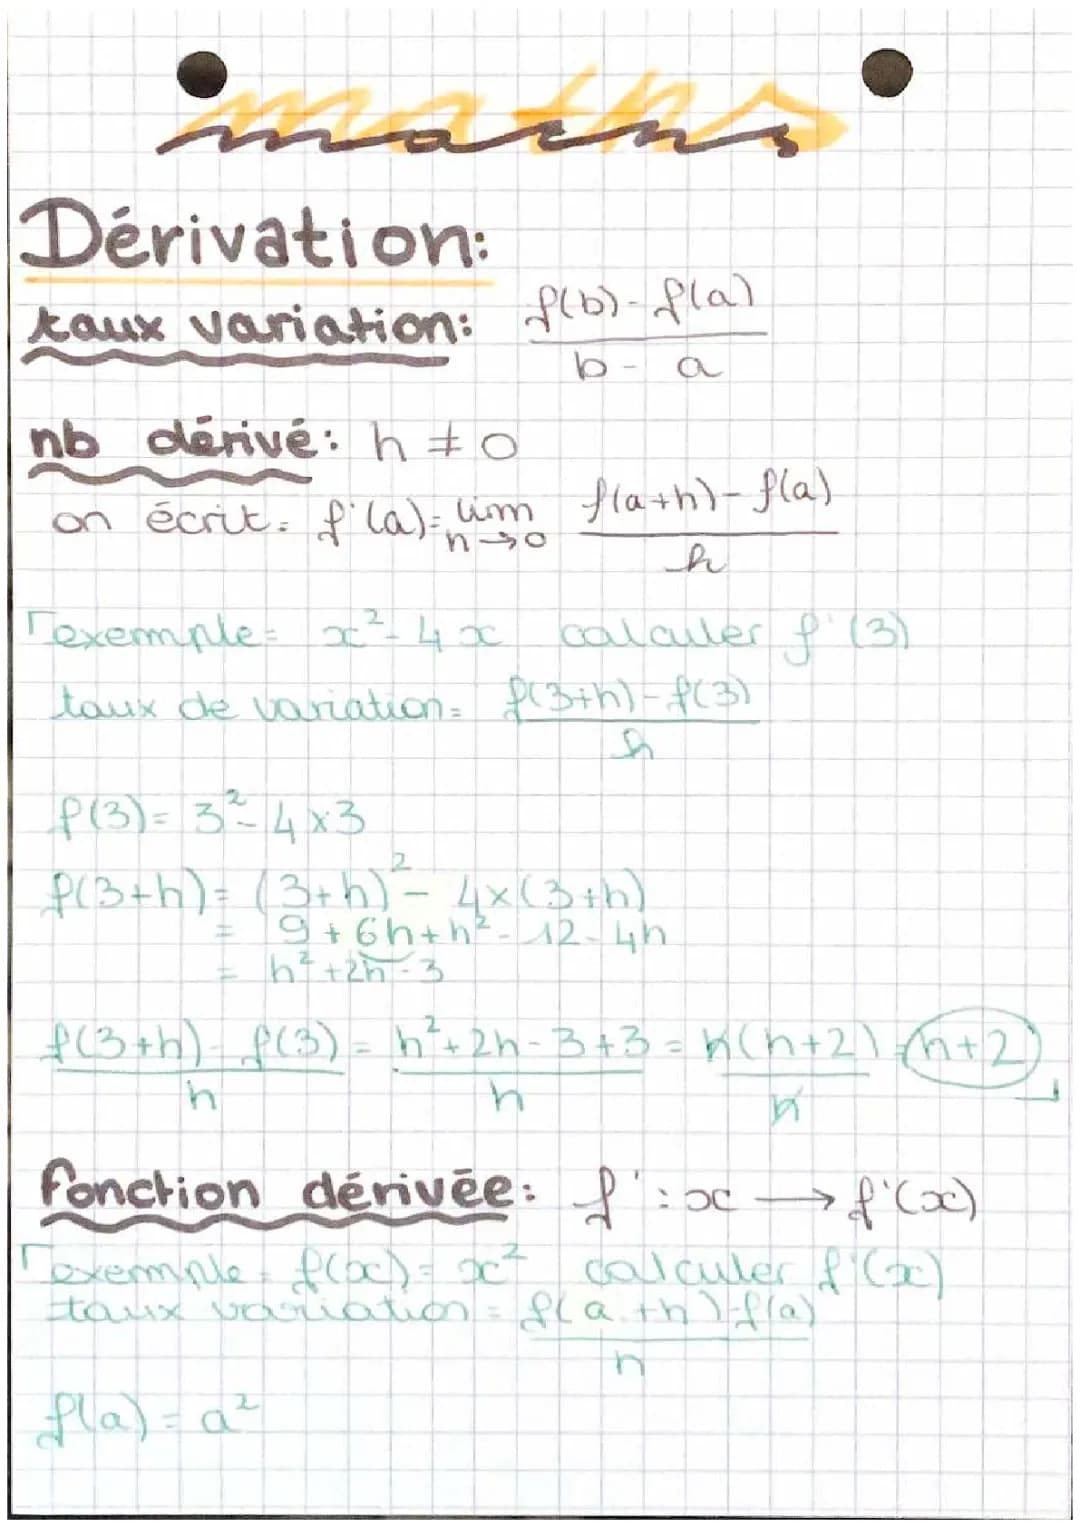 maths
Dérivation:
taux variation: f(b)-f(a) / b-a
nb dérivé: h ≠ 0
on écrit: f'(a)= lim h→0 f(a+h)-f(a) / h
exemple= x²-4x calculer f'(3)
taux de variation= f(3+h)-f(3) / h
f(3)= 3²-4x3
f(3+h)= (3+h)²- 4x(3+h)
= 9+6h+h²-12-4h
= h²+2h-3
f(3+h)-f(3) / h = h²+2h-3+3 / h = h(h+2) / h = h+2
fonction dérivée: f': x → f'(x)
exemple= f(x)= x² calculer f'(x)
taux variation = f(a+h)-f(a) / h
f(a)= a²